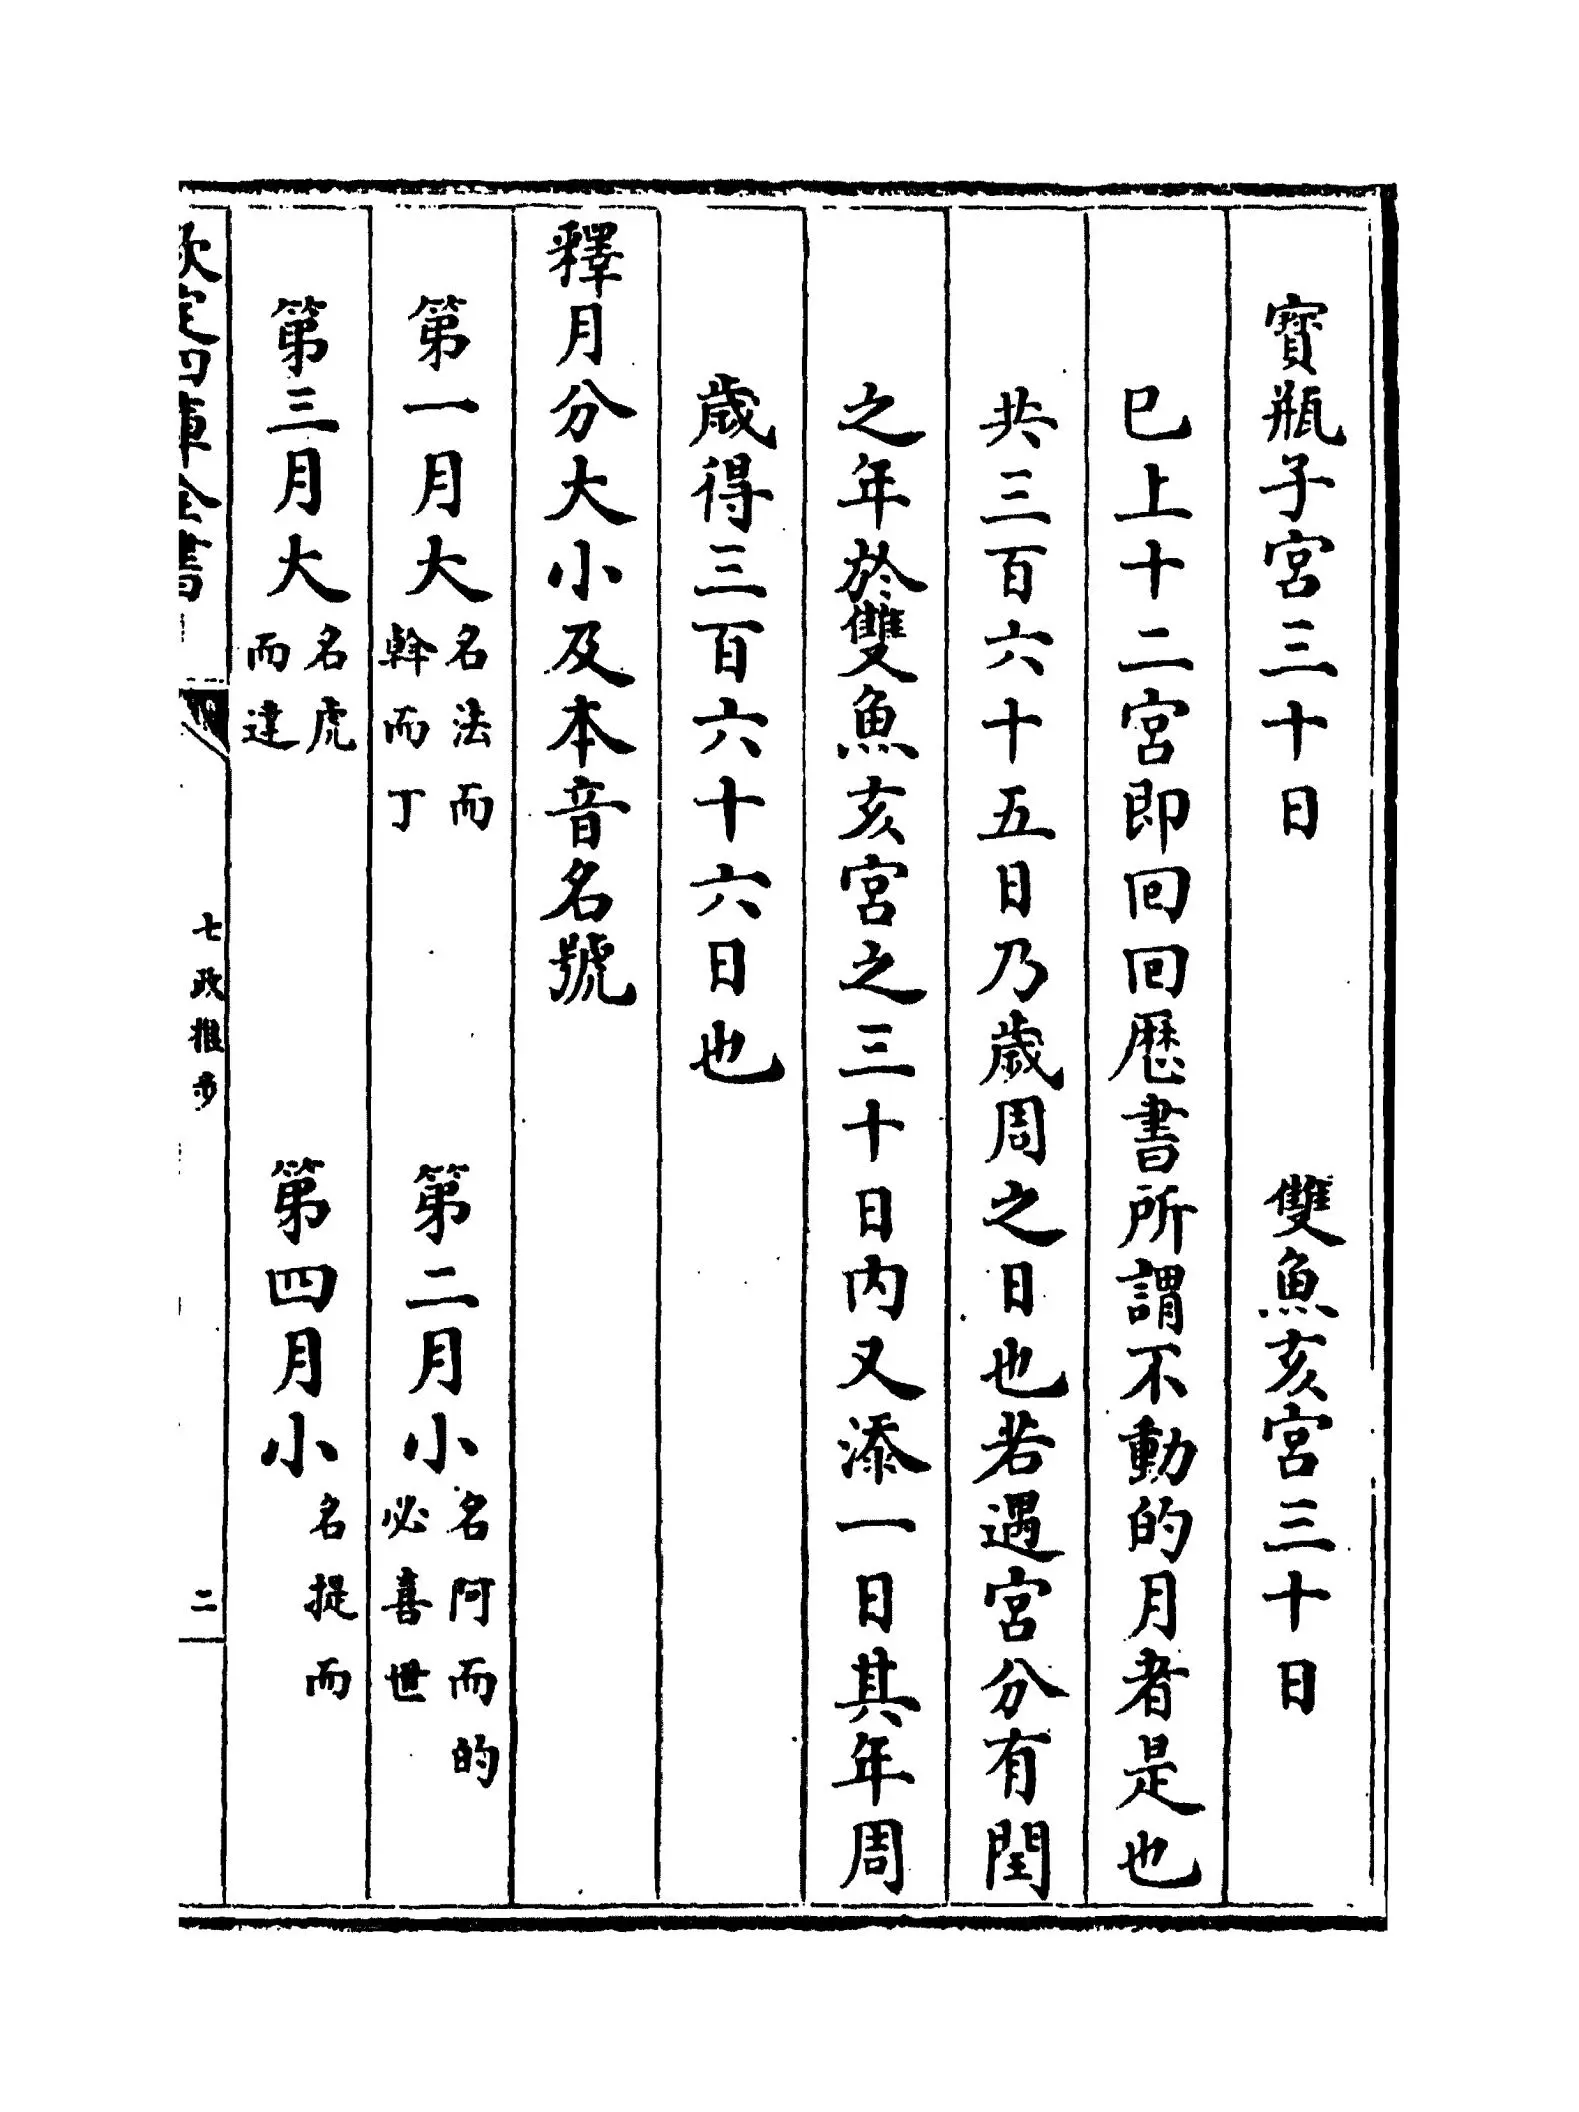 寶瓶子宮三十日　雙魚亥宮三十日
已上十二宮即回回厯書所謂不動的月者是也
共三百六十五日乃歲周之日也若遇宮分有閏
之年於雙魚亥宮之三十日内又添一日其年周
歲得三百六十六日也
釋月分大小及本音名號
第一月大名法而斡而丁　第二月小名阿而的必喜世
第三月大名虎而達　第四月小名提而
欽定四庫全書　七政推步　二